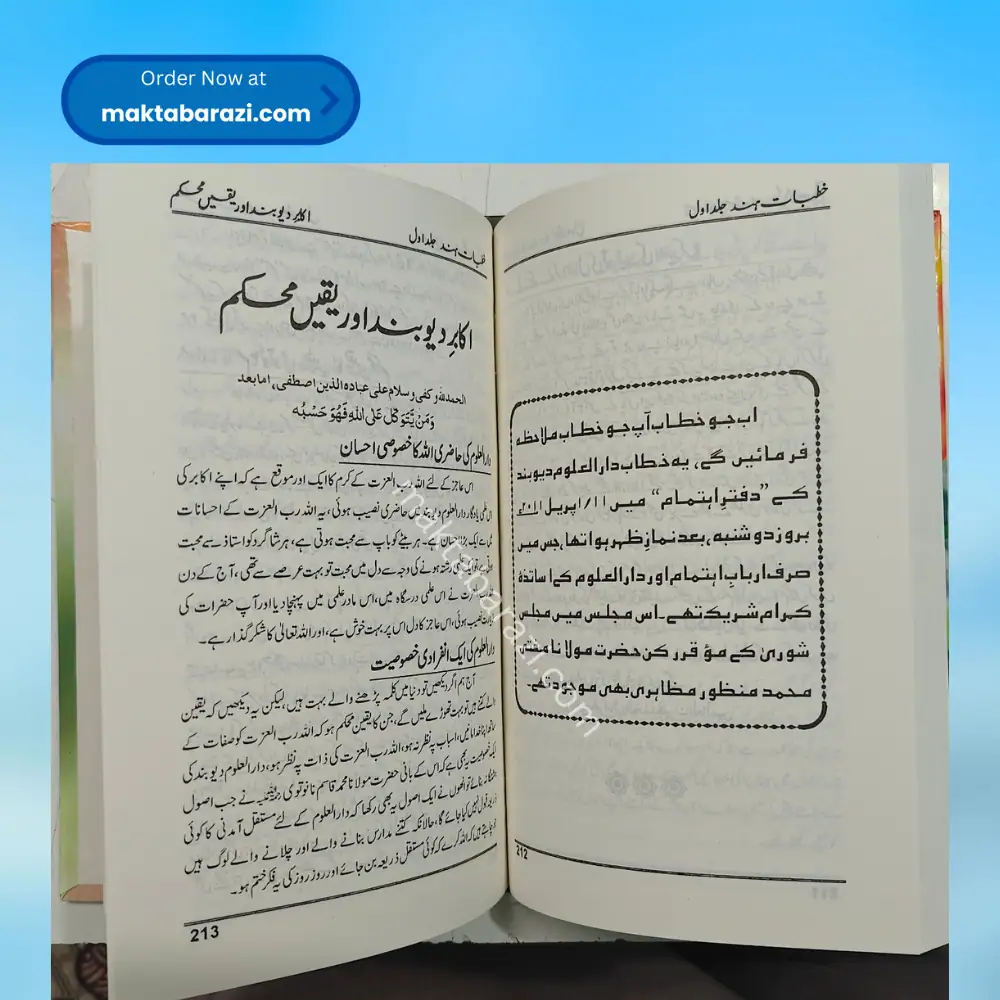 Order Now at
maktabarazi.com
خطبات ہند جلد اول
اب جو خطاب آپ جو خطاب ملاحظہ
فرمائیں گے، یہ خطاب دارالعلوم دیوبند
کے “دفترِ اہتمام” میں ۱۱/اپریل ۲۰۱۱ء
بروز دوشنبہ، بعد نمازِ ظہر ہوا تھا، جس میں
صرف اربابِ اہتمام اور دارالعلوم کے اساتذۂ
کرام شریک تھے۔ اس مجلس میں مجلس
شوریٰ کے مؤقر رکن حضرت مولانا مفتی
محمد منظور مظاہری بھی موجود تھے۔
212
خطبات ہند جلد اول
اکابر دیوبند اور یقیں محکم
اکابرِ دیوبند اور یقیں محکم
الحمدللہ وکفی وسلام علی عبادہ الذین اصطفی، اما بعد
وَمَنْ يَّتَوَكَّلْ عَلَى اللهِ فَهُوَ حَسْبُه
دارالعلوم کی حاضری اللہ کا خصوصی احسان
اس عاجز کے لئے اللہ رب العزت کے کرم کا ایک اور موقع ہے کہ اپنے اکابر کی
علمی یادگار دارالعلوم دیوبند میں حاضری نصیب ہوئی، یہ اللہ رب العزت کے احسانات
ایک بڑا احسان ہے۔ ہر بیٹے کو باپ سے محبت ہوتی ہے، ہر شاگرد کو استاذ سے محبت
رشتہ ہونے کی وجہ سے دل میں محبت تو بہت عرصے سے تھی، آج کے دن
نے اس علمی درسگاہ میں، اس مادر علمی میں پہنچا دیا اور آپ حضرات کی
نصیب ہوئی، اس عاجز کا دل اس پر بہت خوش ہے، اور اللہ تعالیٰ کا شکر گذار ہے۔
دارالعلوم کی ایک انفرادی خصوصیت
آج ہم اگر دیکھیں تو دنیا میں کلمہ پڑھنے والے بہت ہیں، لیکن یہ دیکھیں کہ یقین
والے کتنے ہیں تو بہت تھوڑے ملیں گے، جن کا یقین محکم ہو کہ اللہ رب العزت کو صفات کے
اسباب پہ نظر نہ ہو، اللہ رب العزت کی ذات پہ نظر ہو، دارالعلوم دیوبند کی
ایک خصوصیت یہ بھی ہے کہ اس کے بانی حضرت مولانا محمد قاسم نانوتوی نے جب اصول
بنائے تو انھوں نے ایک اصول یہ بھی رکھا کہ دارالعلوم کے لئے مستقل آمدنی کا کوئی
قبول نہیں کیا جائے گا، حالانکہ کتنے مدارس بنانے والے اور چلانے والے لوگ ہیں
چاہتے ہیں کہ اللہ کرے کہ کوئی مستقل ذریعہ بن جائے اور روز روز کی یہ فکر ختم ہو۔
213
maktabarazi.com